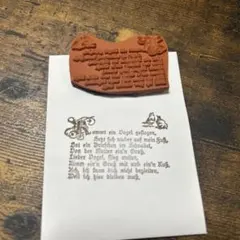 Kommt ein Vogel geflogen,
Setzt sich nieder auf mein Fuß,
Hat ein Briefchen im Schnabel,
Von der Mutter ein'n Gruß.
Lieber Vogel, flieg weiter,
Nimm ein'n Gruß mit und ein'n Kuß,
Ich kann dich nicht begleiten,
Weil ich hier bleiben muß.